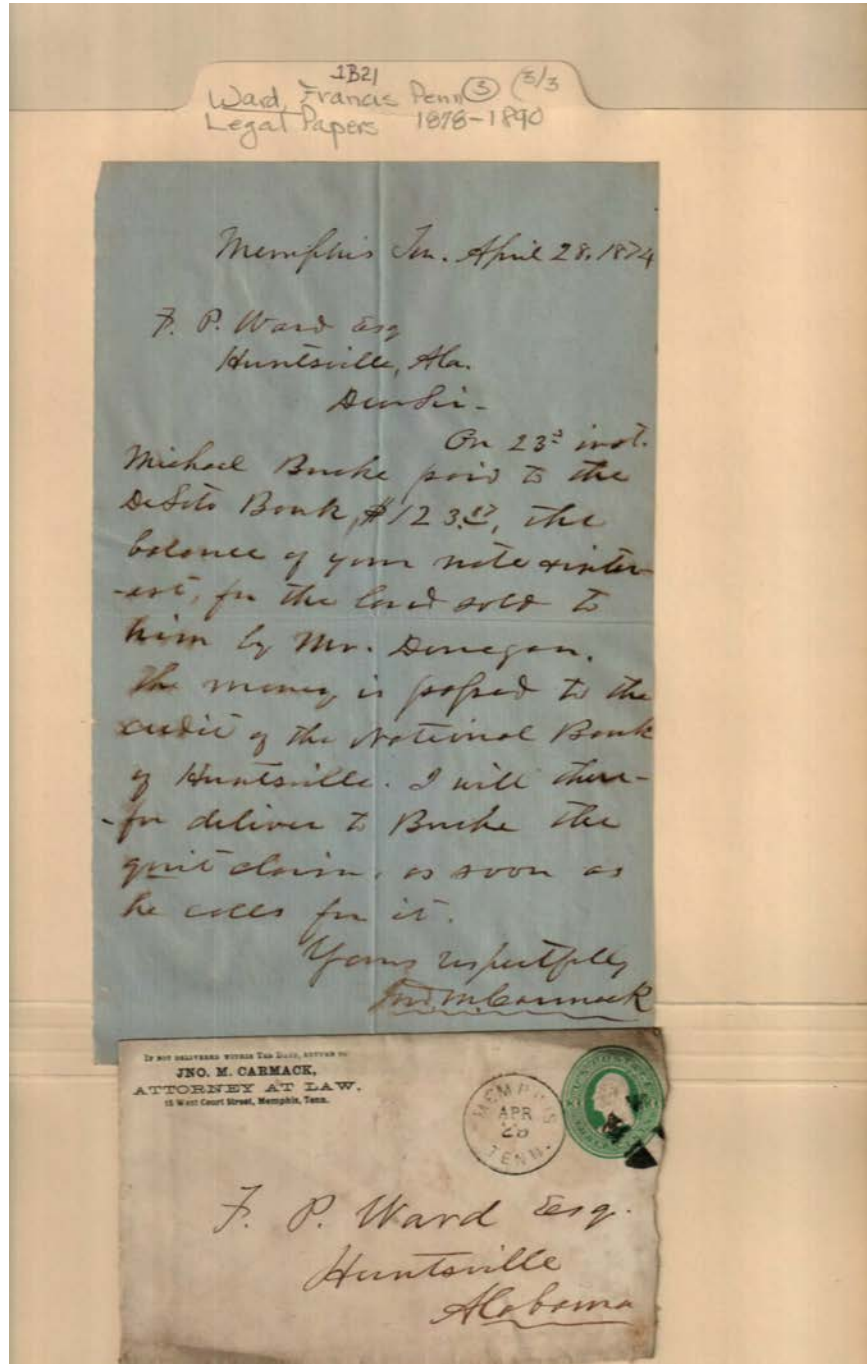 1B21
Ward, Francis Penn ③ (3/3
Legal Papers 1878-1890
Memphis Ten. April 28, 1874
F. P. Ward Esq
Huntsville, Ala.
Dear Sir-
On 23d inst.
Michael Burke paid to the
DeSoto Bank, $123.17, the
balance of your note & inter-
-est, for the land sold to
him by Mr. Donegan.
The money is passed to the
credit of the National Bank
of Huntsville. I will there-
-for deliver to Burke the
quit claim, as soon as
he calls for it.
Yours respectfully
Jno. M. Carmack
IF NOT DELIVERED WITHIN TEN DAYS, RETURN TO
JNO. M. CARMACK,
ATTORNEY AT LAW,
15 West Court Street, Memphis, Tenn.
MEMPHIS
APR
28
TENN.
U.S. POSTAGE
F. P. Ward Esq.
Huntsville
Alabama